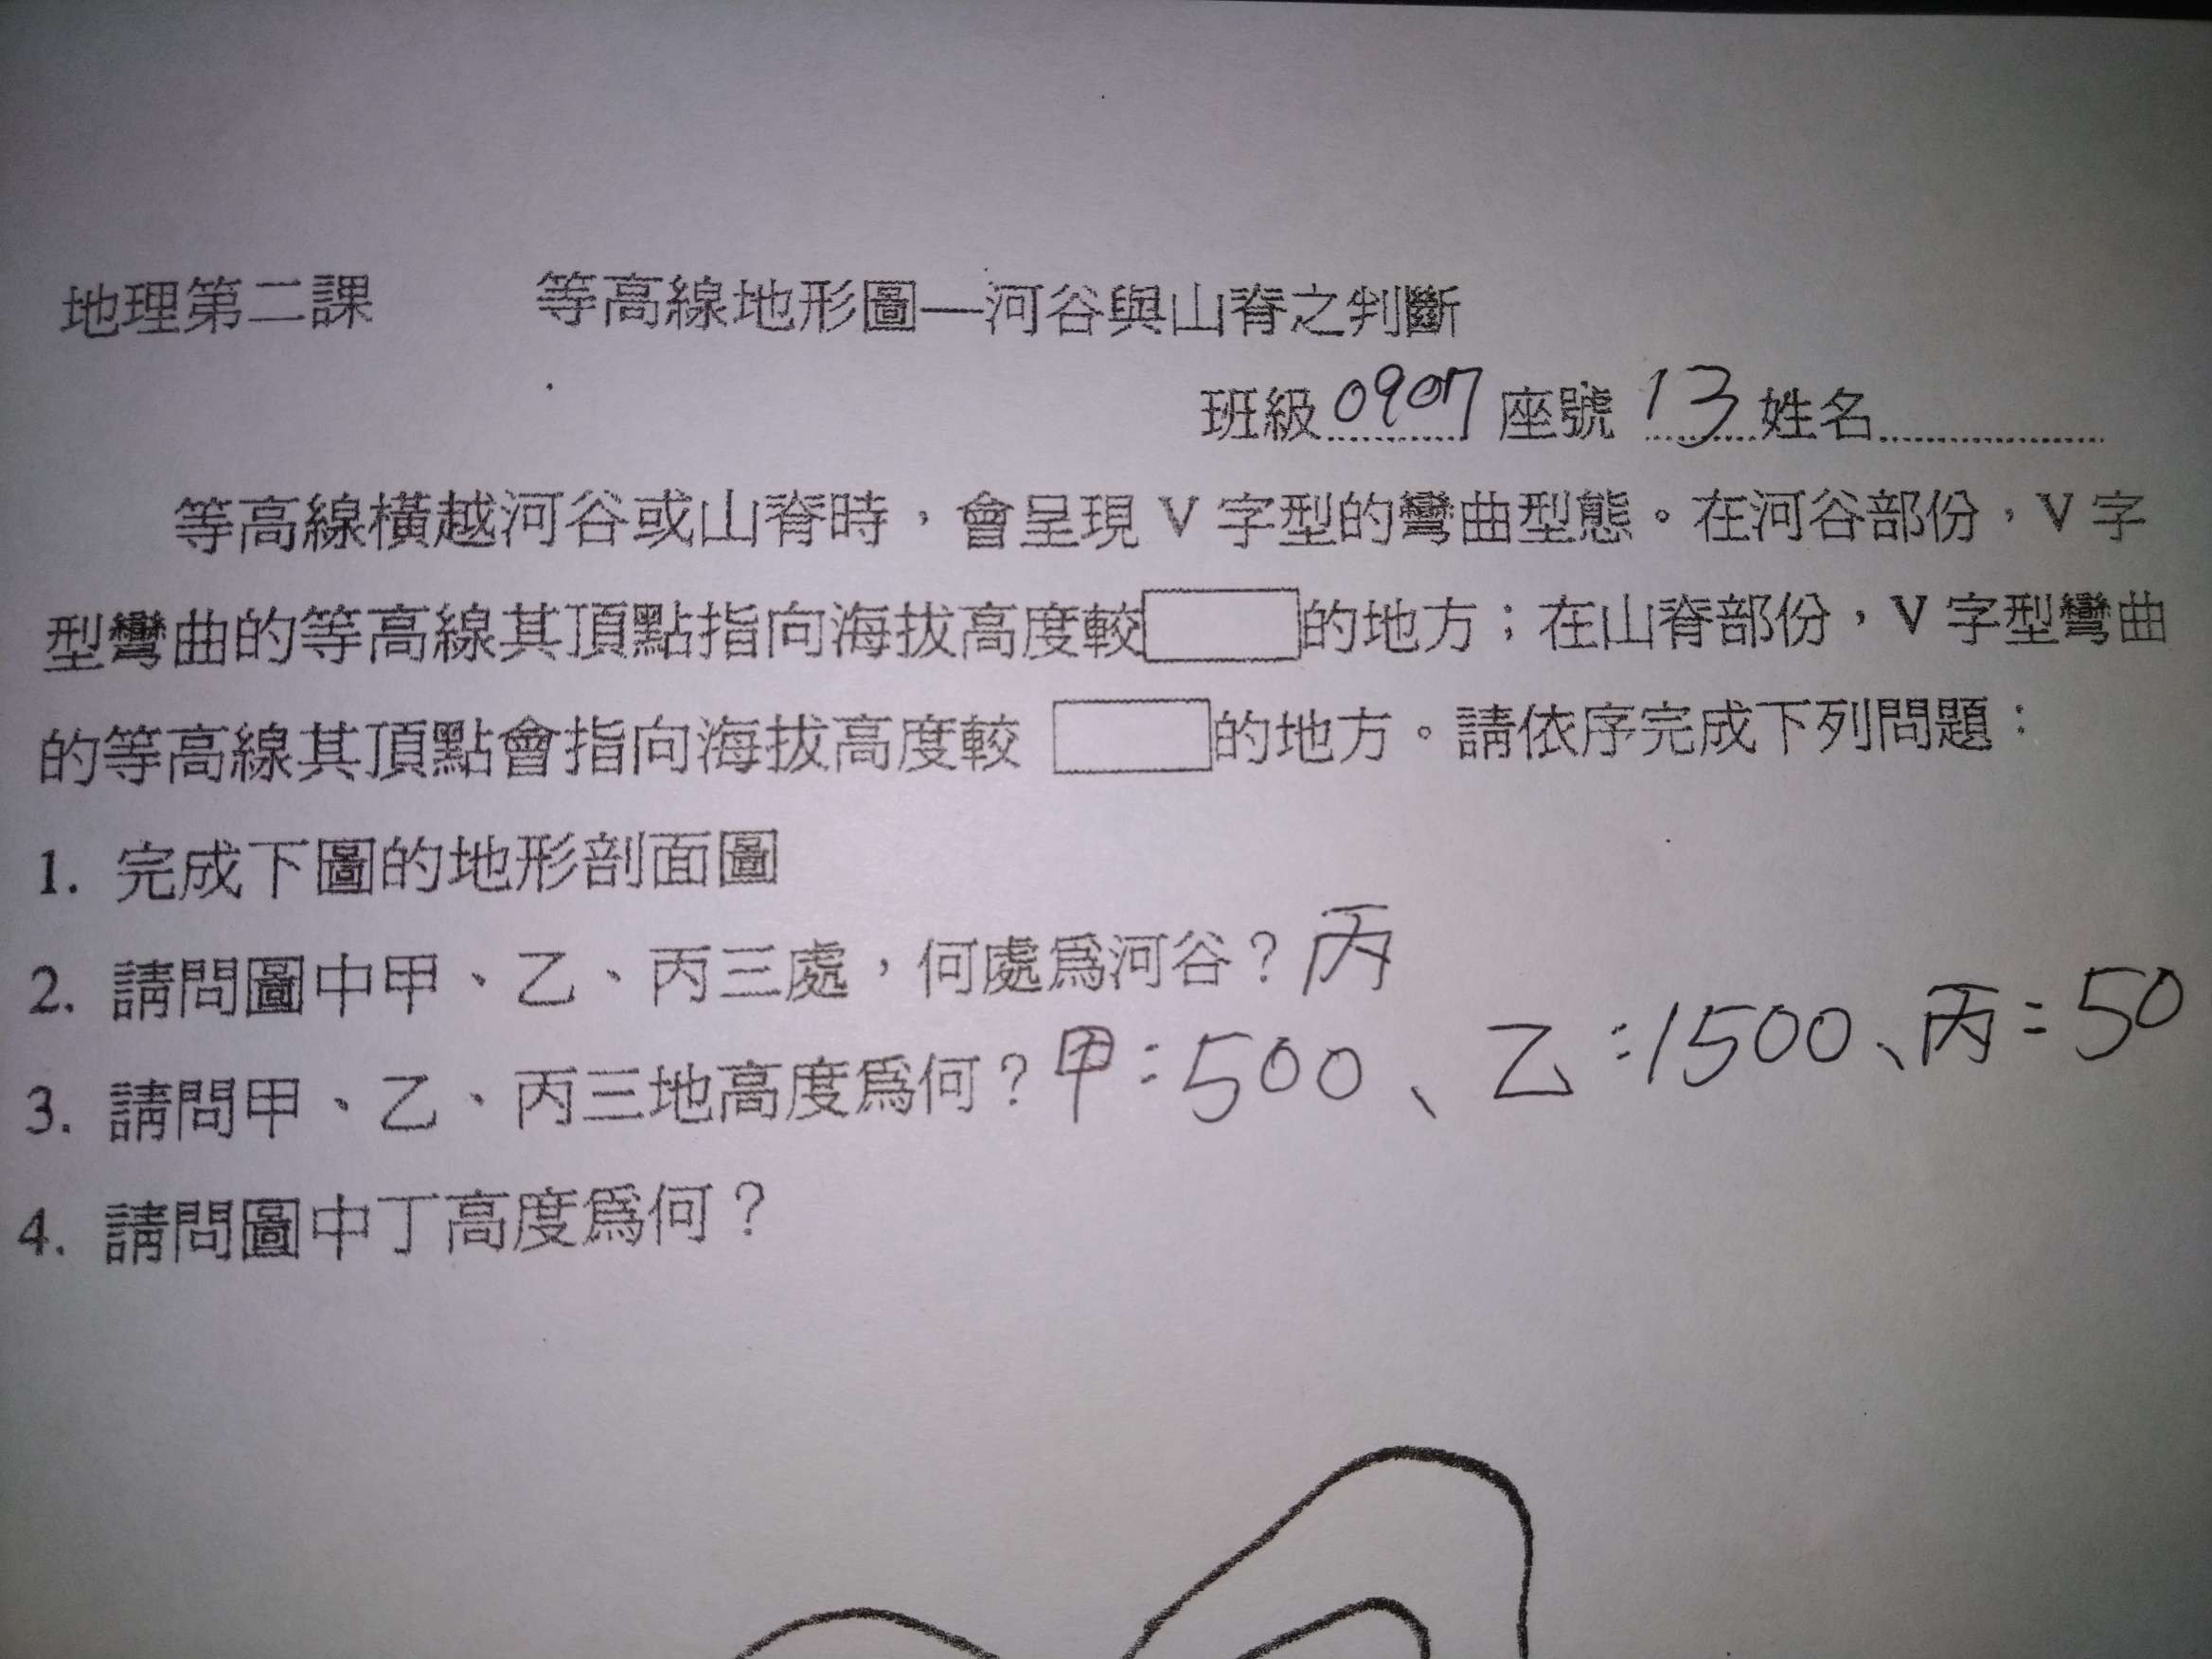 地理第二課 等高線地形圖—河谷與山脊之判斷
班級0907座號 13姓名
等高線橫越河谷或山脊時，會呈現 V 字型的彎曲型態。在河谷部份，V 字
型彎曲的等高線其頂點指向海拔高度較 的地方；在山脊部份，V 字型彎曲
的等高線其頂點會指向海拔高度較 的地方。請依序完成下列問題：
1. 完成下圖的地形剖面圖
2. 請問圖中甲、乙、丙三處，何處爲河谷？丙
3. 請問甲、乙、丙三地高度爲何？甲：500、乙：1500、丙：50
4. 請問圖中丁高度爲何？